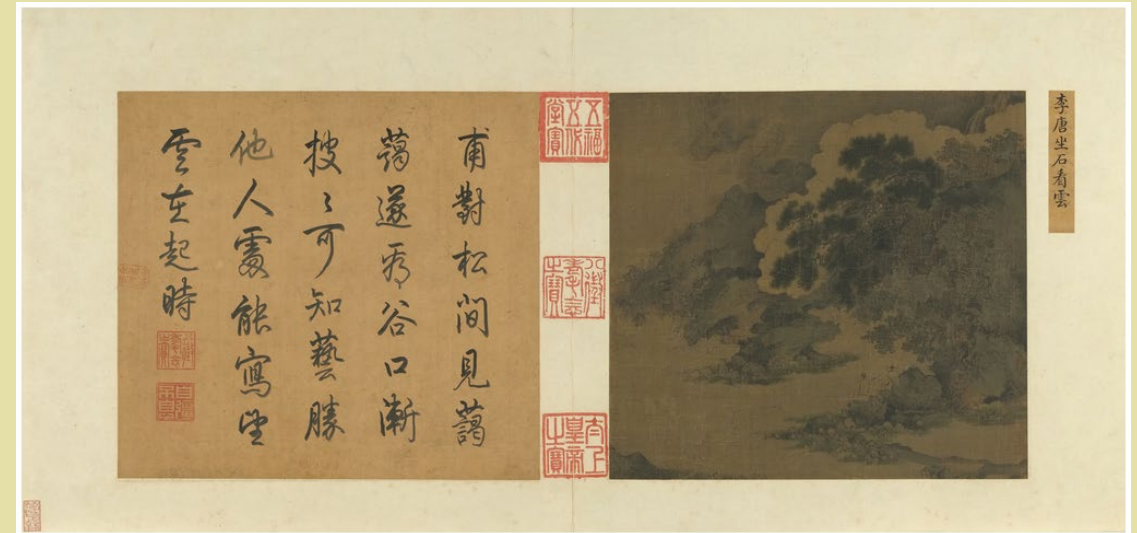 李唐坐石看雲
五福五代堂寶
八徵耄念之寶
太上皇帝之寶
甫對松間見藹
藹遂谷口漸
搜〻可知藝勝
他人處能寫
雲在起時